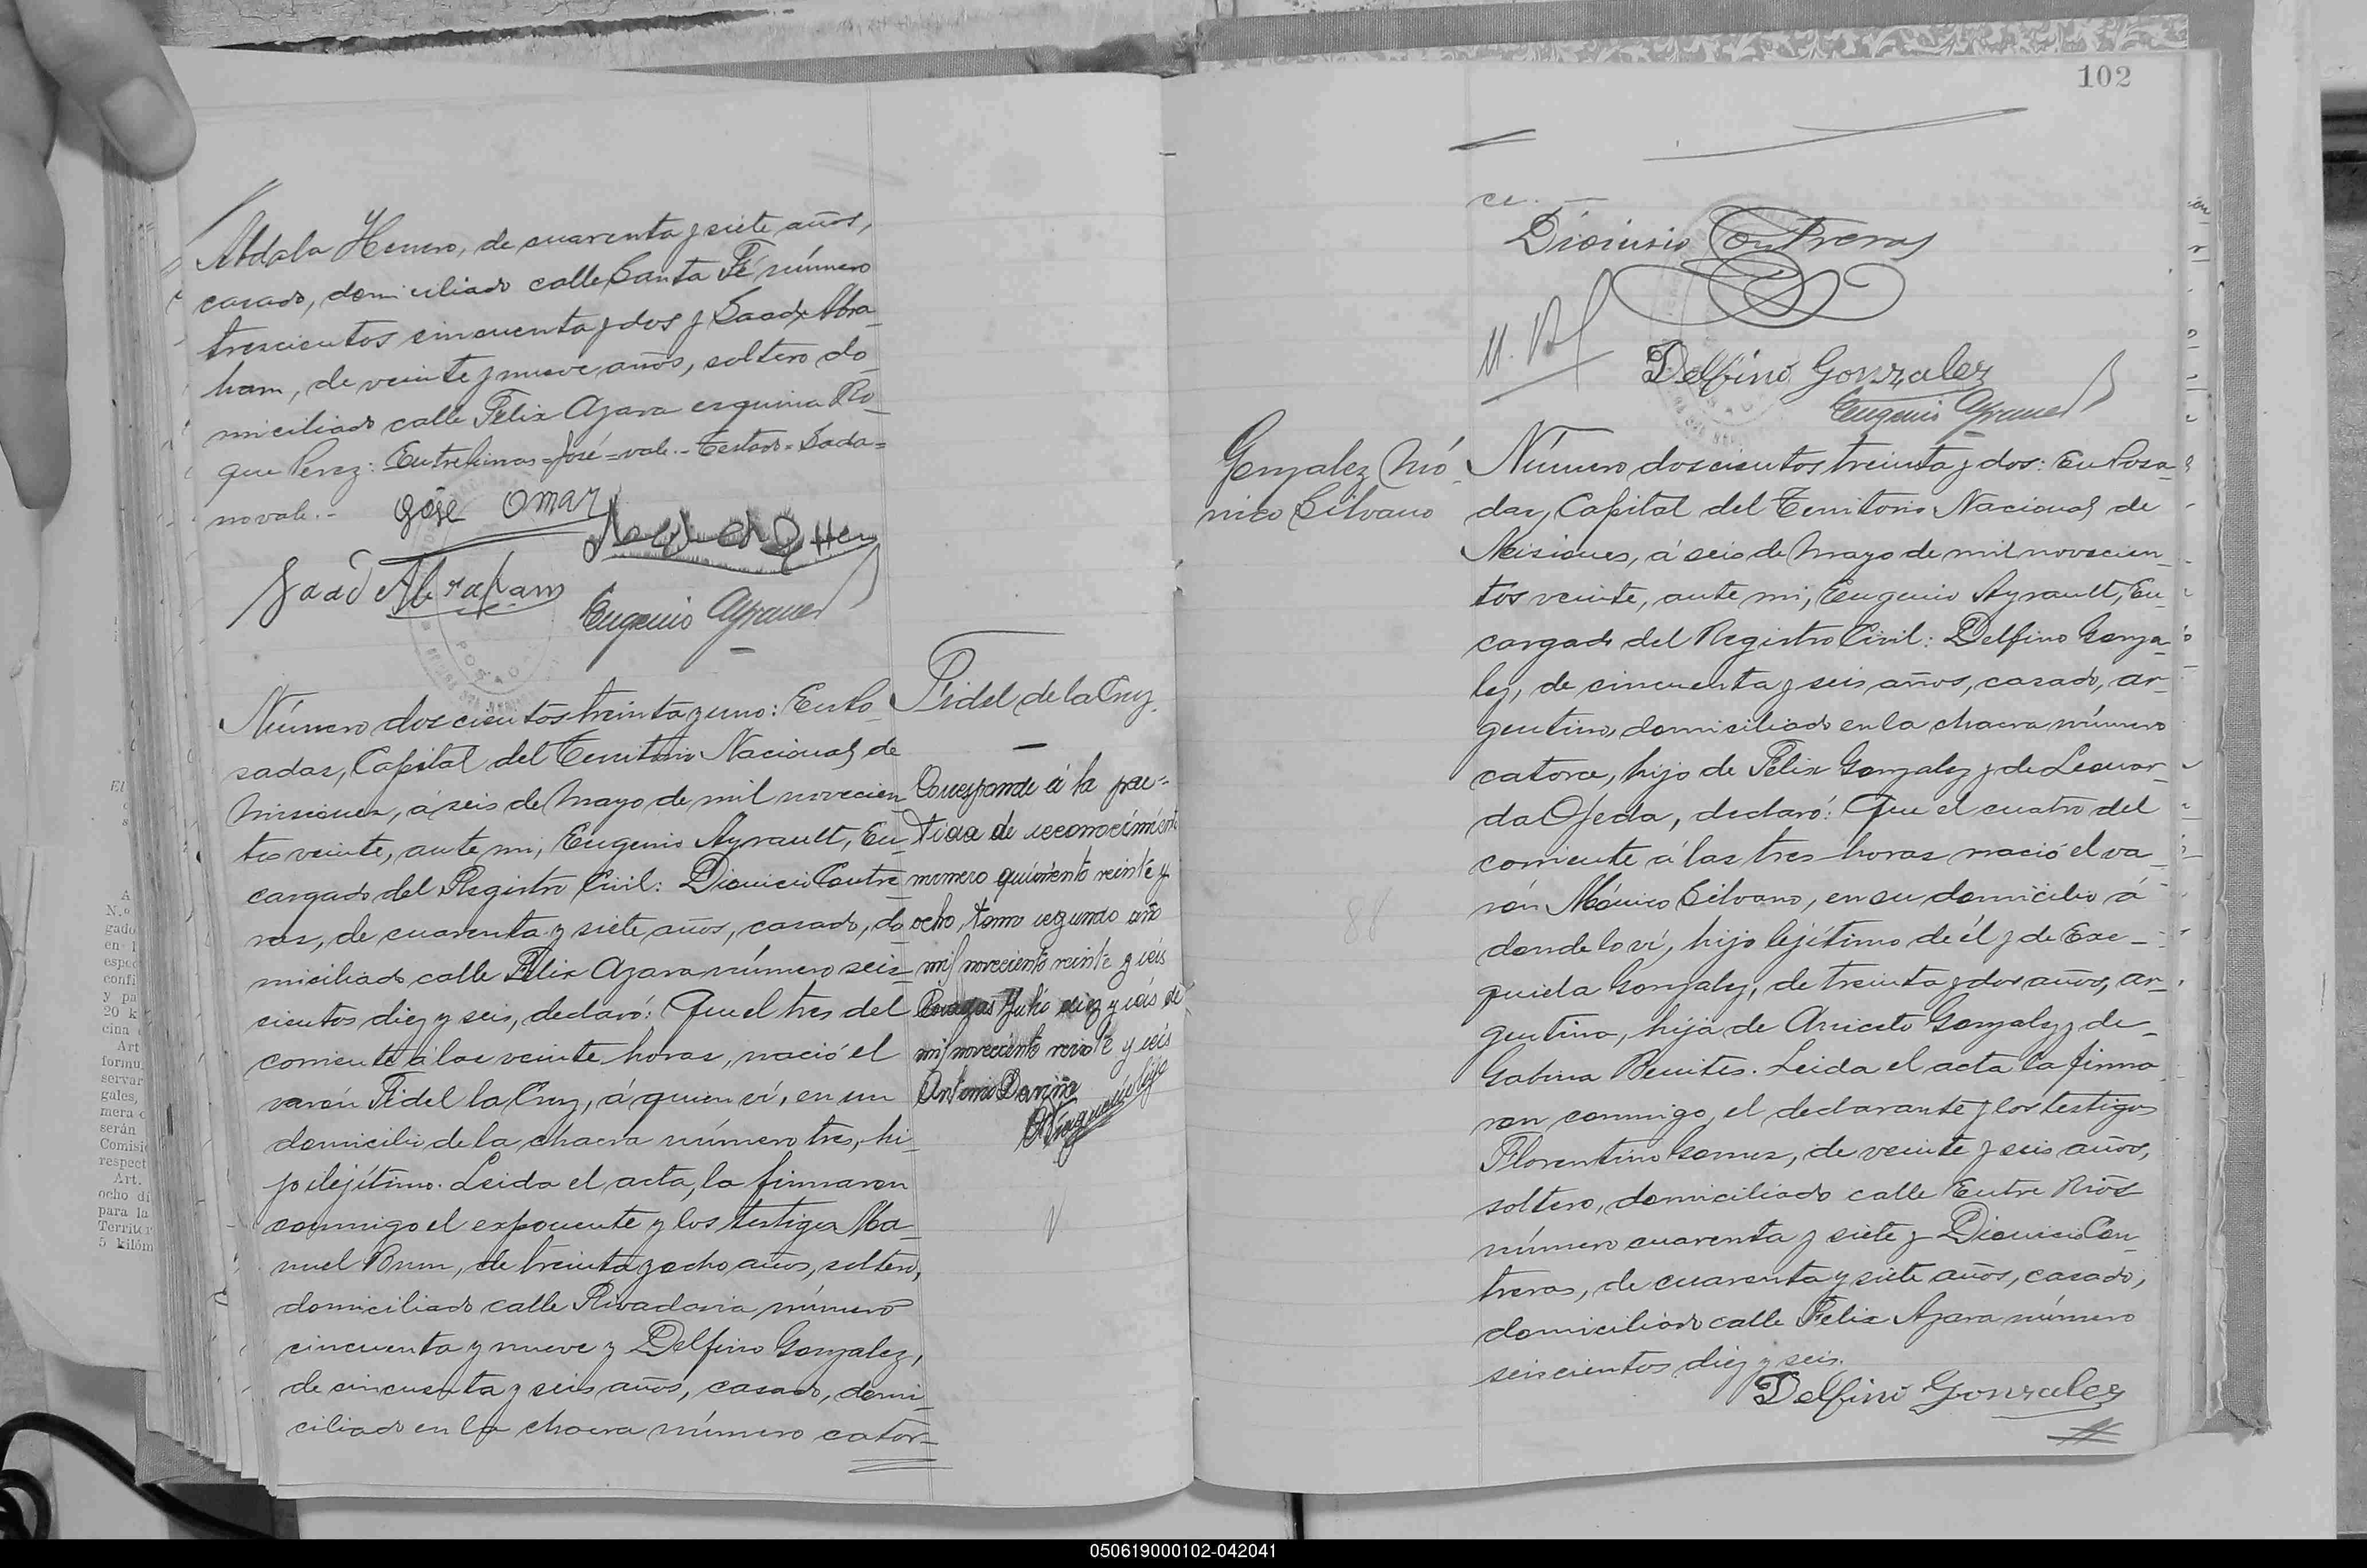 Abdala Herrero, de cuarenta y siete años,
casado, domiciliado calle Santa Fé número
trescientos cincuenta y dos y Saad Abra-
ham, de veinte y nueve años, soltero do-
miciliado calle Felix Azara esquina Ro-
que Perez: Entrelineas-José-vale.-Testado-Sada-
no vale.-
José Omar
Saad Abraham
Eugenio Ayrault
Número doscientos treinta y uno: En Po-
sadas, Capital del Territorio Nacional de
Misiones, á seis de Mayo de mil novecien
tos veinte, ante mi, Eugenio Ayrault, En-
cargado del Registro Civil: Dionicio Contre
ras, de cuarenta y siete años, casado, do-
miciliado calle Felix Azara número seis-
cientos diez y seis, declaró: Que el tres del
corriente á las veinte horas, nació el
varón Fidel la Cruz, á quien ví, en un
domicilio de la chacra número tres, hi-
jo ilejítimo. Leida el acta, la firmaron
conmigo el exponente y los testigos Ma-
nuel Brum, de treinta y ocho años, soltero,
domiciliado calle Rivadavia número
cincuenta y nueve y Delfino Gonzalez,
de cincuenta y seis años, casado, domi-
ciliado en la chacra número cator-
Fidel de la Cruz.
Corresponde á la par-
tida de reconocimiento
número quiniento veinte y
ocho, tomo segundo año
mil novecientos veinte y seis
Posadas Julio diez y seis de
mil novecientos veinte y seis
102
ce.-
Dionisio Contreras
Delfino Gonzalez
Eugenio Ayrault
Gonzalez Mó-
nico Silvano
88
Número doscientos treinta y dos: En Posa-
das, Capital del Territorio Nacional de
Misiones, á seis de Mayo de mil novecien-
tos veinte, ante mi, Eugenio Ayrault, En-
cargado del Registro Civil: Delfino Gonza-
lez, de cincuenta y seis años, casado, ar-
gentino, domiciliado en la chacra número
catorce, hijo de Felix Gonzalez y de Leonar-
da Ojeda, declaró: Que el cuatro del
corriente á las tres horas nació el va-
rón Mónico Silvano, en su domicilio á
donde lo ví, hijo lejítimo de él y de Exe-
quiela Gonzalez, de treinta y dos años, ar-
gentina, hija de Aniceto Gonzalez y de
Gabina Benites. Leida el acta la firma
ron conmigo, el declarante y los testigos
Florentino Gomez, de veinte y seis años,
soltero, domiciliado calle Entre Rios
número cuarenta y siete y Dionicio Con-
treras, de cuarenta y siete años, casado,
domiciliado calle Felix Azara número
seiscientos diez y seis.
Delfino Gonzalez
050619000102-042041